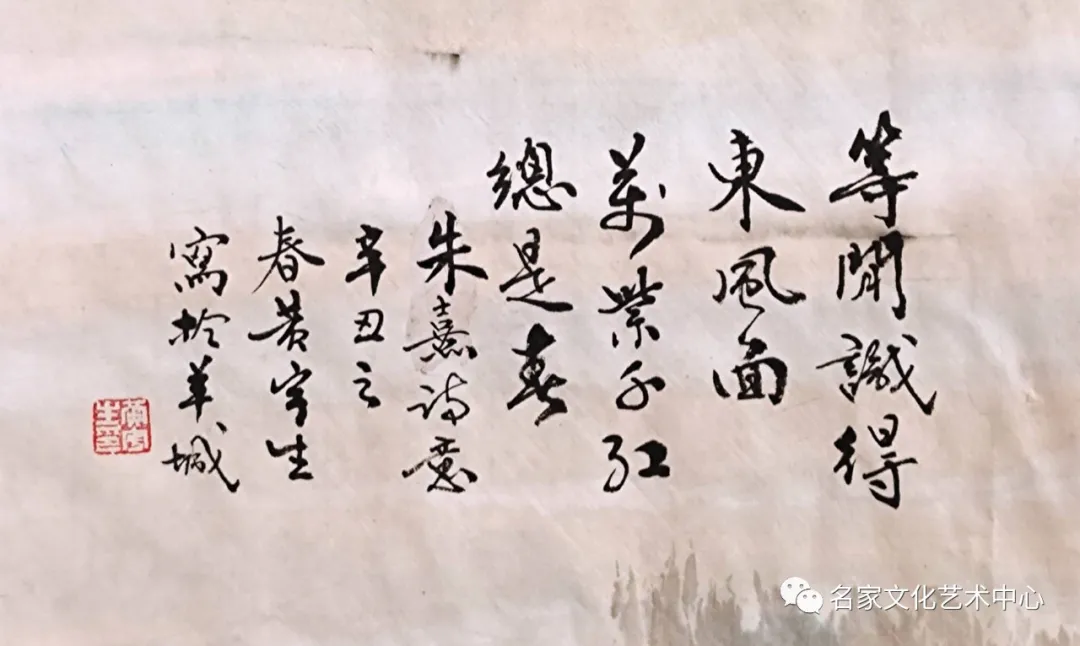 等閒識得
東風面
萬紫千红
總是春
朱熹诗意
辛丑之
春黄宇生
寫於羊城
黄宇生印
名家文化艺术中心